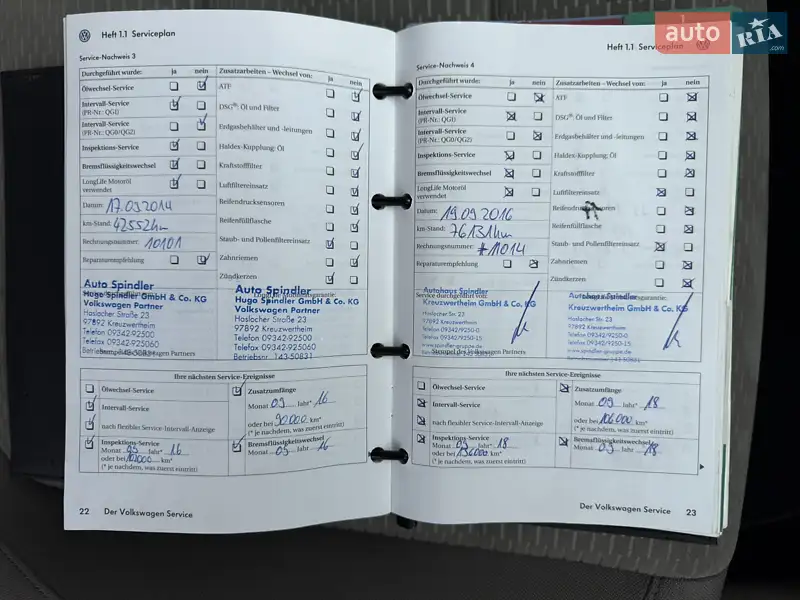 auto
RIA
.com
Heft 1.1 Serviceplan
Service-Nachweis 3
Durchgeführt wurde: ja nein
Ölwechsel-Service
Intervall-Service
(PR-Nr.: QG1)
Intervall-Service
(PR-Nr.: QG0/QG2)
Inspektions-Service
Bremsflüssigkeitswechsel
LongLife Motoröl
verwendet
Datum: 17.09.2014
km-Stand: 42552km
Rechnungsnummer: 10101
Reparaturempfehlung
Zusatzarbeiten - Wechsel von: ja nein
ATF
DSG®: Öl und Filter
Erdgasbehälter und -leitungen
Haldex-Kupplung: Öl
Kraftstofffilter
Luftfiltereinsatz
Reifendrucksensoren
Reifenfüllflasche
Staub- und Pollenfiltereinsatz
Zahnriemen
Zündkerzen
Auto Spindler
Hugo Spindler GmbH & Co. KG
Volkswagen Partner
Haslocher Straße 23
97892 Kreuzwertheim
Telefon 09342-92500
Telefax 09342-925060
Auto Spindler
Hugo Spindler GmbH & Co. KG
Volkswagen Partner
Haslocher Straße 23
97892 Kreuzwertheim
Telefon 09342-92500
Telefax 09342-925060
Betriebsnr. 143-50831
Ihre nächsten Service-Ereignisse
Ölwechsel-Service
Intervall-Service
nach flexibler Service-Intervall-Anzeige
Inspektions-Service
Monat 09 Jahr* 16
oder bei km*
(* je nachdem, was zuerst eintritt)
Zusatzumfänge
Monat 09 Jahr* 16
oder bei 90000 km*
(* je nachdem, was zuerst eintritt)
Bremsflüssigkeitswechsel
Monat 09 Jahr 16
22 Der Volkswagen Service
Heft 1.1 Serviceplan
Service-Nachweis 4
Durchgeführt wurde: ja nein
Ölwechsel-Service
Intervall-Service
(PR-Nr.: QG1)
Intervall-Service
(PR-Nr.: QG0/QG2)
Inspektions-Service
Bremsflüssigkeitswechsel
LongLife Motoröl
verwendet
Datum: 19.09.2016
km-Stand: 76131km
Rechnungsnummer: #11014
Reparaturempfehlung
Zusatzarbeiten - Wechsel von: ja nein
ATF
DSG®: Öl und Filter
Erdgasbehälter und -leitungen
Haldex-Kupplung: Öl
Kraftstofffilter
Luftfiltereinsatz
Reifendrucksensoren
Reifenfüllflasche
Staub- und Pollenfiltereinsatz
Zahnriemen
Zündkerzen
Service durchgeführt von:
Autohaus Spindler
Kreuzwertheim GmbH & Co. KG
Haslocher Str. 23
97892 Kreuzwertheim
Telefon 09342/9250-0
Telefax 09342/9250-15
www.spindler-gruppe.de
Stempel des Volkswagen Partners
Autohaus Spindler
Kreuzwertheim GmbH & Co. KG
Haslocher Str. 23
97892 Kreuzwertheim
Telefon 09342/9250-0
Telefax 09342/9250-15
www.spindler-gruppe.de
Ihre nächsten Service-Ereignisse
Ölwechsel-Service
Intervall-Service
nach flexibler Service-Intervall-Anzeige
Inspektions-Service
Monat 09 Jahr* 18
oder bei 136000 km*
(* je nachdem, was zuerst eintritt)
Zusatzumfänge
Monat 09 Jahr* 18
oder bei 106000 km*
(* je nachdem, was zuerst eintritt)
Bremsflüssigkeitswechsel
Monat 09 Jahr 18
Der Volkswagen Service 23